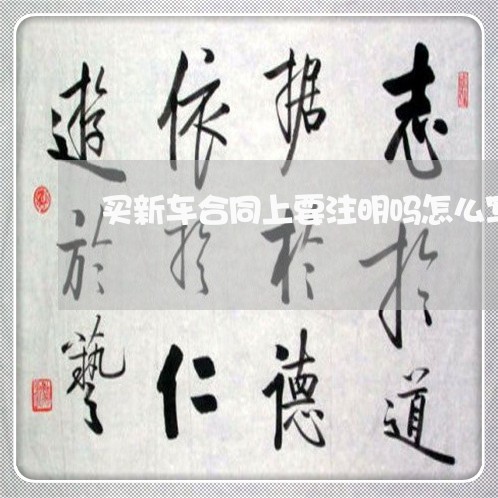 志於道
据於德
依於仁
遊於藝
买新车合同上要注明吗怎么